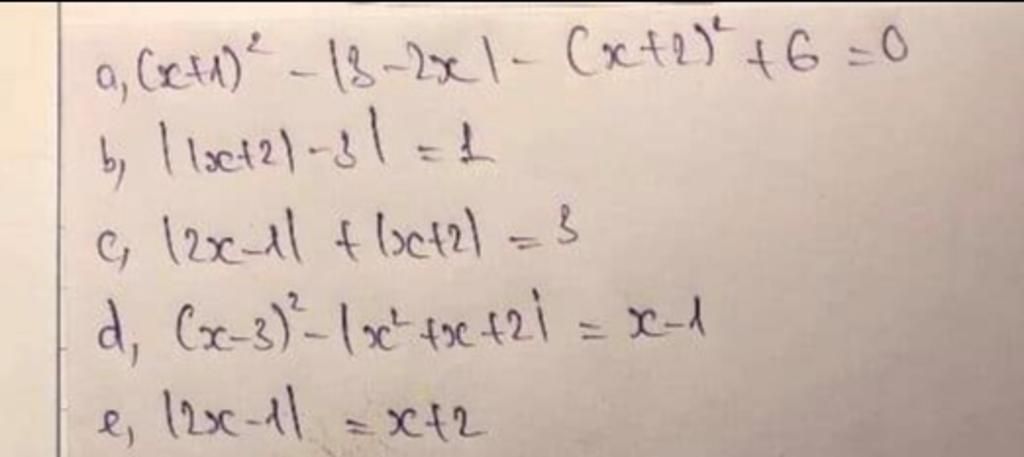 a, (x+1)² - |3-2x| - (x+2)² + 6 = 0
b, | |x+2| - 3 | = 1
c, |2x-1| + |x+2| = 3
d, (x-3)² - |x²+x+2| = x-1
e, |2x-1| = x+2